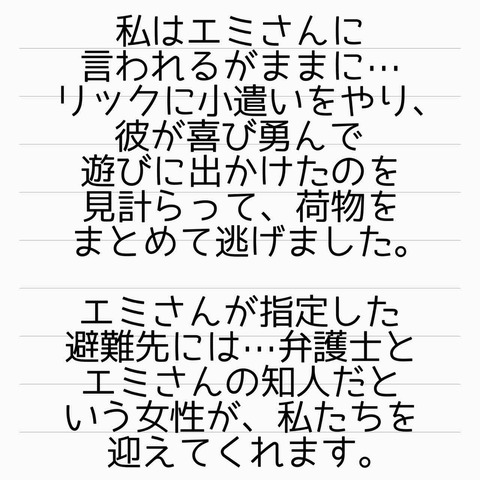 私はエミさんに
言われるがままに…
リックに小遣いをやり、
彼が喜び勇んで
遊びに出かけたのを
見計らって、荷物を
まとめて逃げました。
エミさんが指定した
避難先には…弁護士と
エミさんの知人だと
いう女性が、私たちを
迎えてくれます。